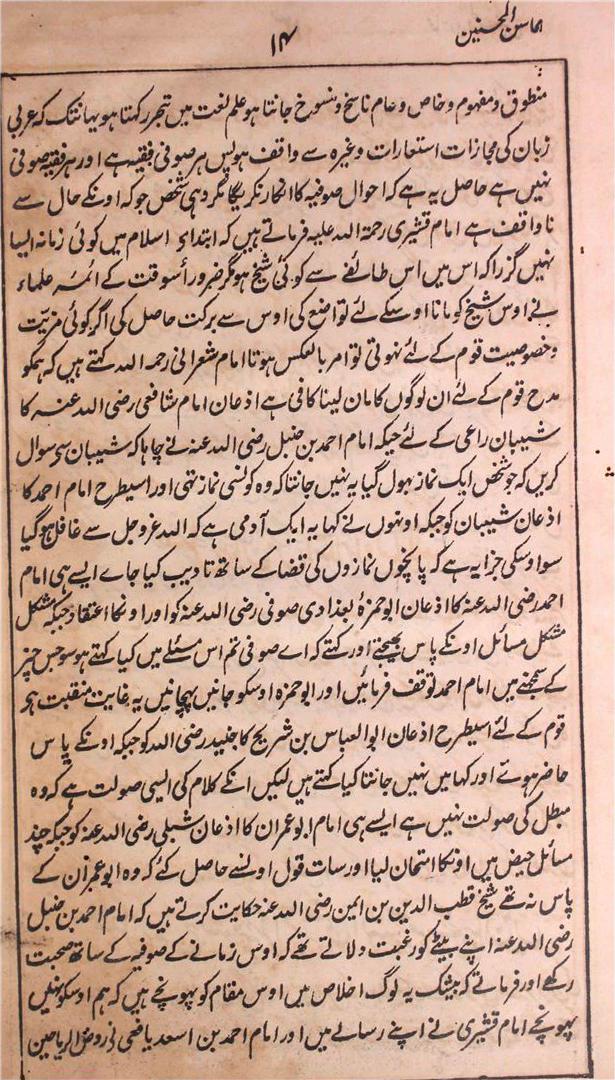 محاسن المحسنین
۱۴
منطوق و مفہوم و خاص و عام ناسخ و منسوخ جانتا ہو علم لغت میں تبحر رکھتا ہو یہانتک کہ عربی
زبان کی مجازات استعارات وغیرہ سے واقف ہو پس ہر صوفی فقیہ ہے اور ہر فقیہ صوفی
نہیں ہے حاصل یہ ہے کہ احوال صوفیہ کا انکار نکریگا مگر وہی شخص جو کہ اونکے حال سے
ناواقف ہے امام قشیری رحمۃ اللہ علیہ فرماتے ہیں کہ ابتداءِ اسلام میں کوئی زمانہ ایسا
نہیں گزرا کہ اس میں اس طائفے سے کوئی شیخ ہو مگر ضرور اُسوقت کے ائمہ علماء
نے اوس شیخ کو مانا اوسکے لئے تواضع کی اوس سے برکت حاصل کی اگر کوئی مزیت
و خصوصیت قوم کے لئے نہوتی تو امر بالعکس ہوتا امام شعرانی رحمہ اللہ کہتے ہیں کہ ہمکو
مدح قوم کے لئے ان لوگوں کا مان لینا کافی ہے اذعان امام شافعی رضی اللہ عنہ کا
شیبان راعی کے لئے جبکہ امام احمد بن حنبل رضی اللہ عنہ نے چاہا کہ شیبان سے سوال
کریں کہ جو شخص ایک نماز بہول گیا یہ نہیں جانتا کہ وہ کونسی نماز تہی اور اسیطرح امام احمد کا
اذعان شیبان کو جبکہ اونہوں نے کہا یہ ایک آدمی ہے کہ اللہ عزوجل سے غافل ہو گیا
سو اوسکی جزا یہ ہے کہ پانچوں نمازوں کی قضا کے ساتھ تادیب کیا جاے ایسے ہی امام
احمد رضی اللہ عنہ کا اذعان ابو حمزہ بغدادی صوفی رضی اللہ عنہ کو اور اونکا اعتقاد جبکہ مشکل
مشکل مسائل اونکے پاس بھیجتے اور کہتے کہ اے صوفی تم اس مسئلے میں کیا کہتے ہو سو جس چیز
کے سمجھنے میں امام احمد توقف فرمائیں اور ابو حمزہ اوسکو جانیں پہچانیں یہ غایت منقبت ہے
قوم کے لئے اسیطرح اذعان ابو العباس بن شریح کا جنید رضی اللہ کو جبکہ اونکے پاس
حاضر ہوئے اور کہا میں نہیں جانتا کیا کہتے ہیں لیکن انکے کلام کی ایسی صولت ہے کہ وہ
مبطل کی صولت نہیں ہے ایسے ہی امام ابو عمران کا اذعان شبلی رضی اللہ عنہ کو جبکہ چند
مسائل حیض میں اونکا امتحان لیا اور سات قول اونسے حاصل کئے کہ وہ ابو عمران کے
پاس نہ تھے شیخ قطب الدین بن ایمن رضی اللہ عنہ حکایت کرتے ہیں کہ امام احمد بن حنبل
رضی اللہ عنہ اپنے بیٹے کو رغبت دلاتے تھے کہ اوس زمانے کے صوفیہ کے ساتھ صحبت
رکھے اور فرماتے کہ بیشک یہ لوگ اخلاص میں اوس مقام کو پہونچے ہیں کہ ہم اوسکو نہیں
پہونچے امام قشیری نے اپنے رسالے میں اور امام احمد بن اسعد یافعی نے روض الریاحین